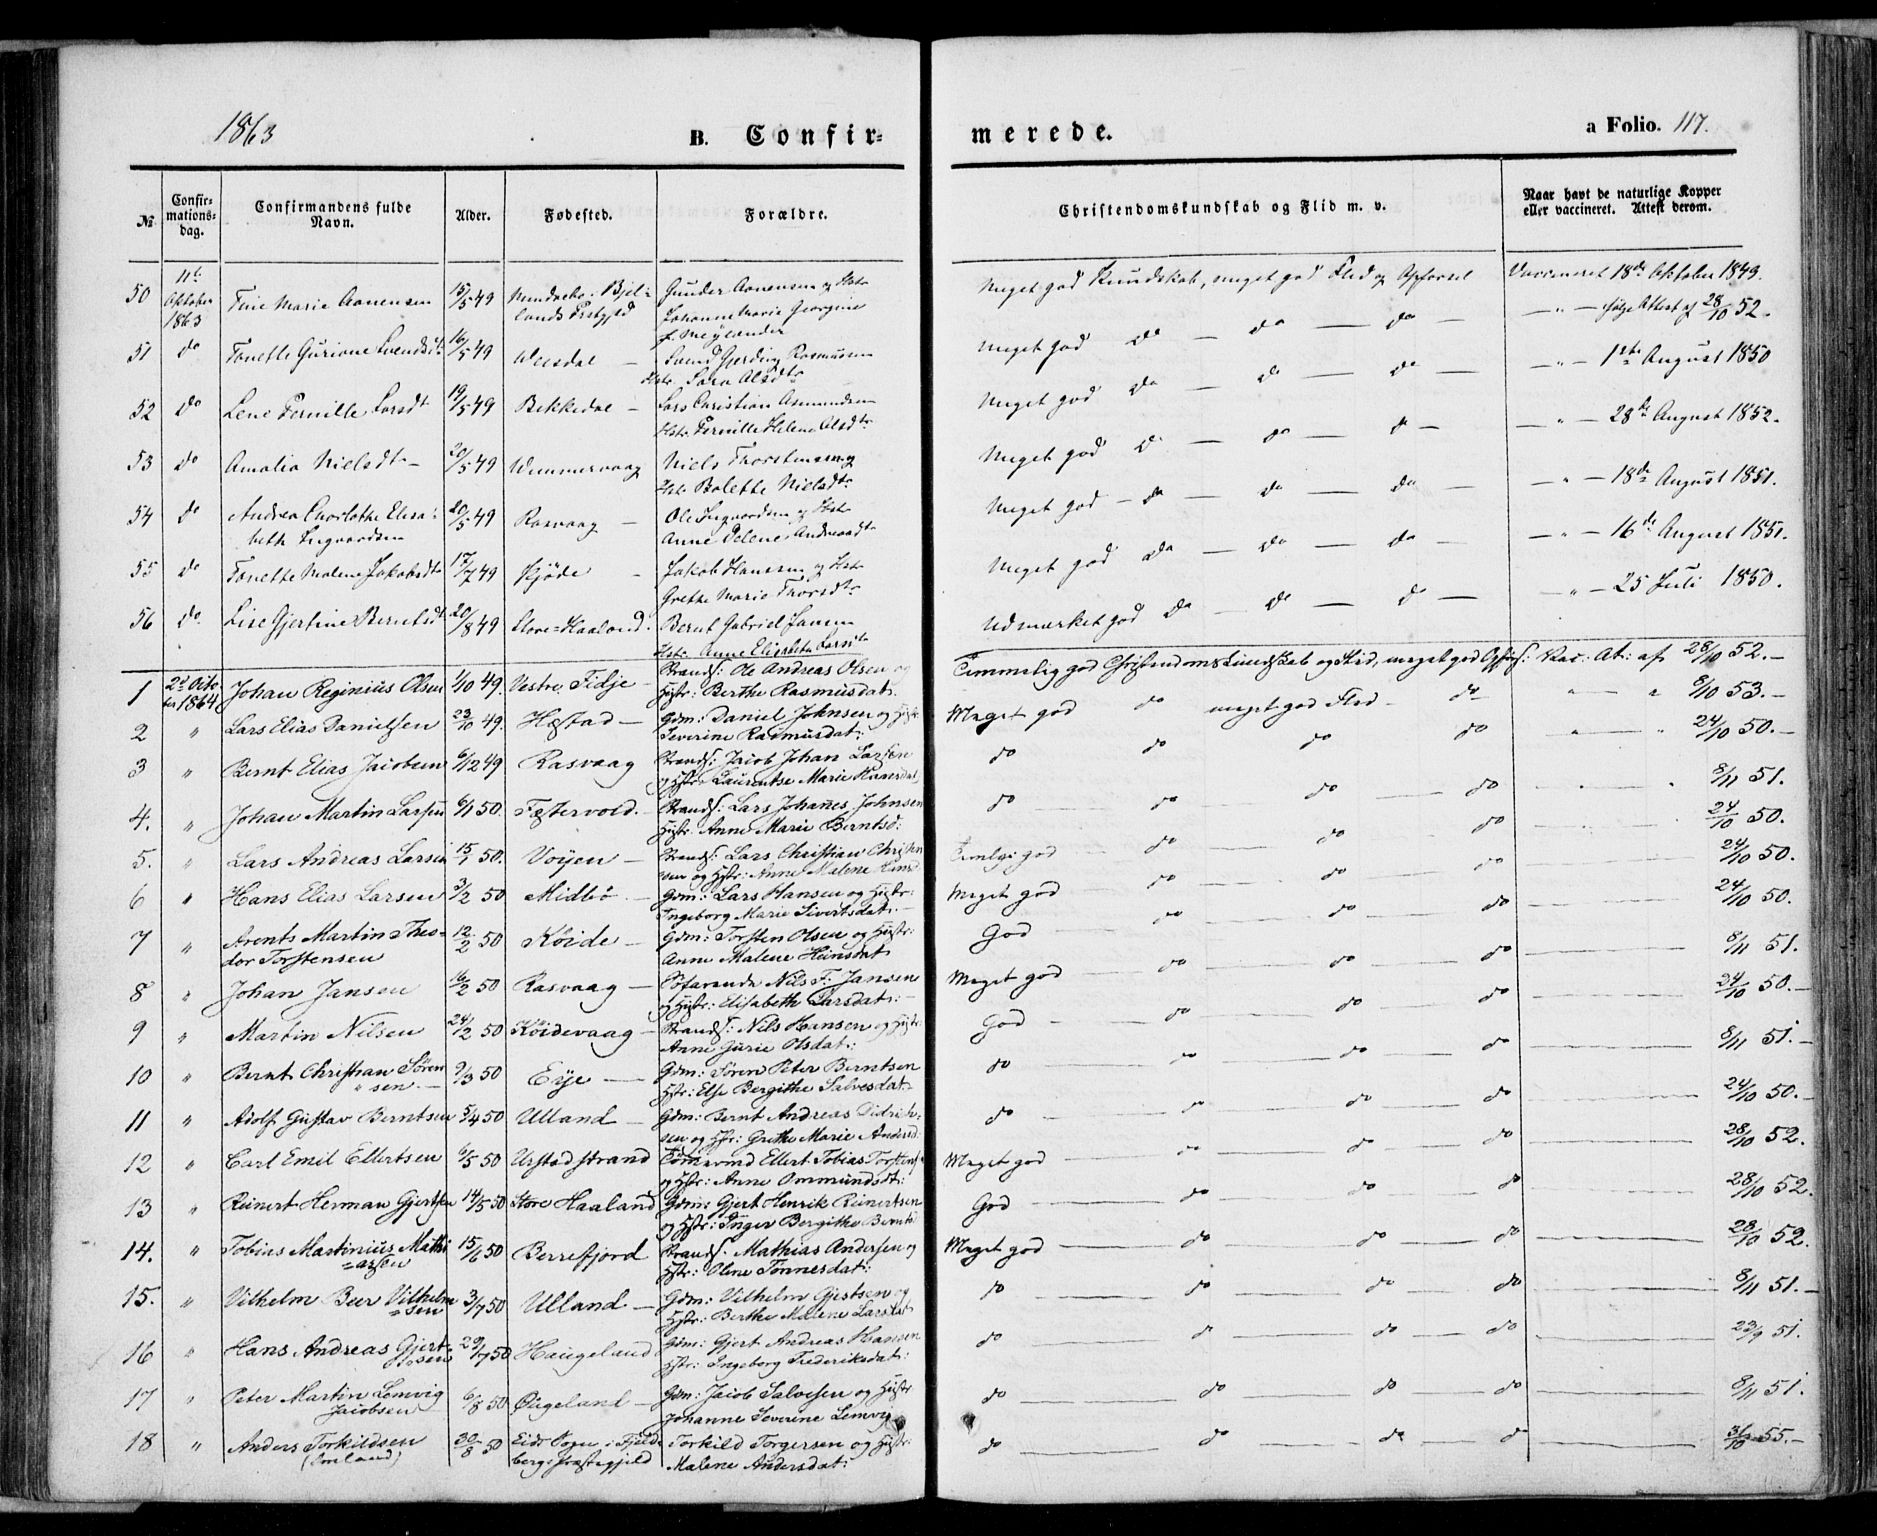 1863
B. Confirmerede.
a Folio. 117.
No.
Confirmationsdag.
Confirmandens fulde Navn.
Alder.
Fødested.
Forældre.
Christendomskundskab og Flid m. v.
Naar havt de naturlige Kopper eller vaccineret. Attest derom.
50 11te Oktober 1863 Tine Marie Aanensen 15/5 49 i Bjellands Prstgjld Gunder Aanensen og Hstr Johanne Marie Georgine f. Meget god Kundskab, meget god Flid og Opførsel Vaccineret 18de Oktober 1849.
51 do Tonette Guriane Svendsdt 16/5 49 Svend Gjerding Rasmussen Hstr Sara Olsdtr Meget god do — do — do — — " — følge Attest af 28/10 52.
52 do Lene Pernille Larsdt 19/5 49 Bekkedal — Lars Christian Asmundsen Hstr Pernille Helene Olsdtr Meget god do — do — do — " — 1ste August 1850
53 do Amalia Nielsdtr — 20/5 49 Niels Thorstensen og Hstr Bolette Nielsdtr Meget god do — do — do — " — 28de August 1852.
54 do Andrea Charlothe Elisabeth Ingvardsen 20/5 49 Rasvaag — Ole Ingvardsen og Hstr Anne Helene Meget god — do — do — do — " — 18de August 1851.
55 do Tonette Malene Jakobsdtr 17/7 49 Kjöde — Jakob Hansen og Hstr Grethe Marie Thorsdtr Meget god do — do — do — " — 16de August 1851.
56 do Lise Gjertine Berntsdt 20/8 49 Store=Haaland. Bernt Gabriel Jansen Hstr Anne Elisabeth Larsdt Udmærket god do — do — do — " — 25 Juli 1850.
1 2d October 1864 Johan Reginius Olsen 1/10 49. Vestre Fidje — Strands: Ole Andreas Olsen og Hustr: Berthe Rasmusdat: Temmelig god Christendomskundskab og Flid, meget god Opførs: Vac: At: af 28/10 52. —
2 " Lars Elias Danielsen 23/10 49. Hæstad — Gdm: Daniel Johnsen og Hustr Severine Rasmusdat: Meget god do meget god Flid — do " — " 8/10 53. —
3 " Bernt Elias Jacobsen 6/12 49 Rasvaag Strands: Jacob Johan Larsen og Hstr: Laurentse Marie do do do do " — " 24/10 50. —
4. " Johan Martin Larsen 6/1 50. Fæstervold. — Strands: Lars Johanes Johnsen Hustr: Anne Marie Berntsd: do — do — do — do 8/11 51.
5. " Lars Andreas Larsen 15/1 50. Voijen — Strands: Lars Christian Christensen og Hstr: Anne Malene do — do — do 24/10 50.
6 " Hans Elias Larsen 3/2 50 Midbö — Gdm: Lars Hansen og Hustr: Ingeborg Marie Sivertsdat: Meget god do — do — do 24/10 50.
7 " Arents Martin Theodor Torstensen 12/2 50 Köide — Gdm: Torsten Olsen og Hustr: Anne Malene God do — do — do 24/10 50.
8 " Johan Jansen 16/2 50 Rasvaag — Söfarende Nils F. Jansen og Hustr: Elisabeth Larsdat: — Meget god do — do — do 8/11 51.
9 " Martin Nilsen 24/2 50 Köidevaag — Strands: Nils Hansen og Hustr Anne Gurie Olsdat: God — do — do — do 24/10 50. —
10 " Bernt Christian Sörensen — 9/3 50 Eije — Gdm: Sören Peter Berntsen Hstr: Else Bergithe Salvesdat: do do — do — do 8/11 51. —
11 " Adolf Gustav Berntsen 5/4 50 Ulland — Gdm: Bernt Andreas Didriksen og Hstr: Grethe Marie Andersd: do — do — do — do 24/10 50. —
12 " Carl Emil Ellertsen 6/5 50 Urstad strand Ellert Tobias og Hstr: Anne Ommundsdt: Meget god — do — do 28/10 52.
13 " Reinert Herman Gjertsen 14/5 50 Store Haaland Gdm: Gjert Henrik Reinertsen og Hstr: Inger Bergithe Berntsd God — do — do — do 28/10 52.
14. " Tobias Martinius Mathiassen 15/6 50 Berrefjord Strands. Mathias Andersen og Hstr: Oline Tönnesdat: Meget god — do — do — do 28/10 52.
15. " Vilhelm Beer Vilhelmsen 3/7 50 Ulland — Gdm: Vilhelm Gjertsen og Hustr: Berthe Malene Larsdat do do — do — do 8/11 51. —
16 " Hans Andreas Gjertsen 29/7 50 Haugeland Gdm: Gjert Andreas Hansen Hstr: Ingeborg Frederiksdat: do do — do — do 23/9 51.
17 " Peter Martin Lemvig Jacobsen 6/8 50 Öigeland — Gdm: Jacob Salvesen og Hustr Johanne Severine Lemvig do — do — do — do 8/11 51.
18 " Anders Torkildsen 30/8 50 Eids Sogn i Fjeldbergs Præstegjeld Torkild Torgersen og Hustr: Malene Andersdat: do do — do — do 55. —